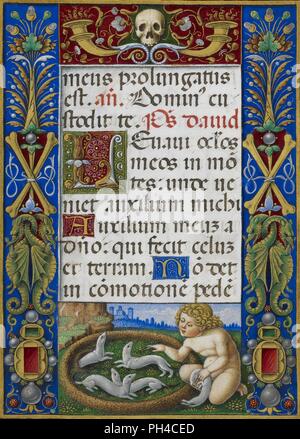 meus prolungatus
est. añ. Domin' cu
stodit te. Ps dauid
Leuaui oc̃los
meos in mõ
tes. unde ue
niet auxilium michi
Auxilium meuz a
dño. qui fecit celuz
et terram. Nõ det
in comotionẽ pedẽ
PH4CED